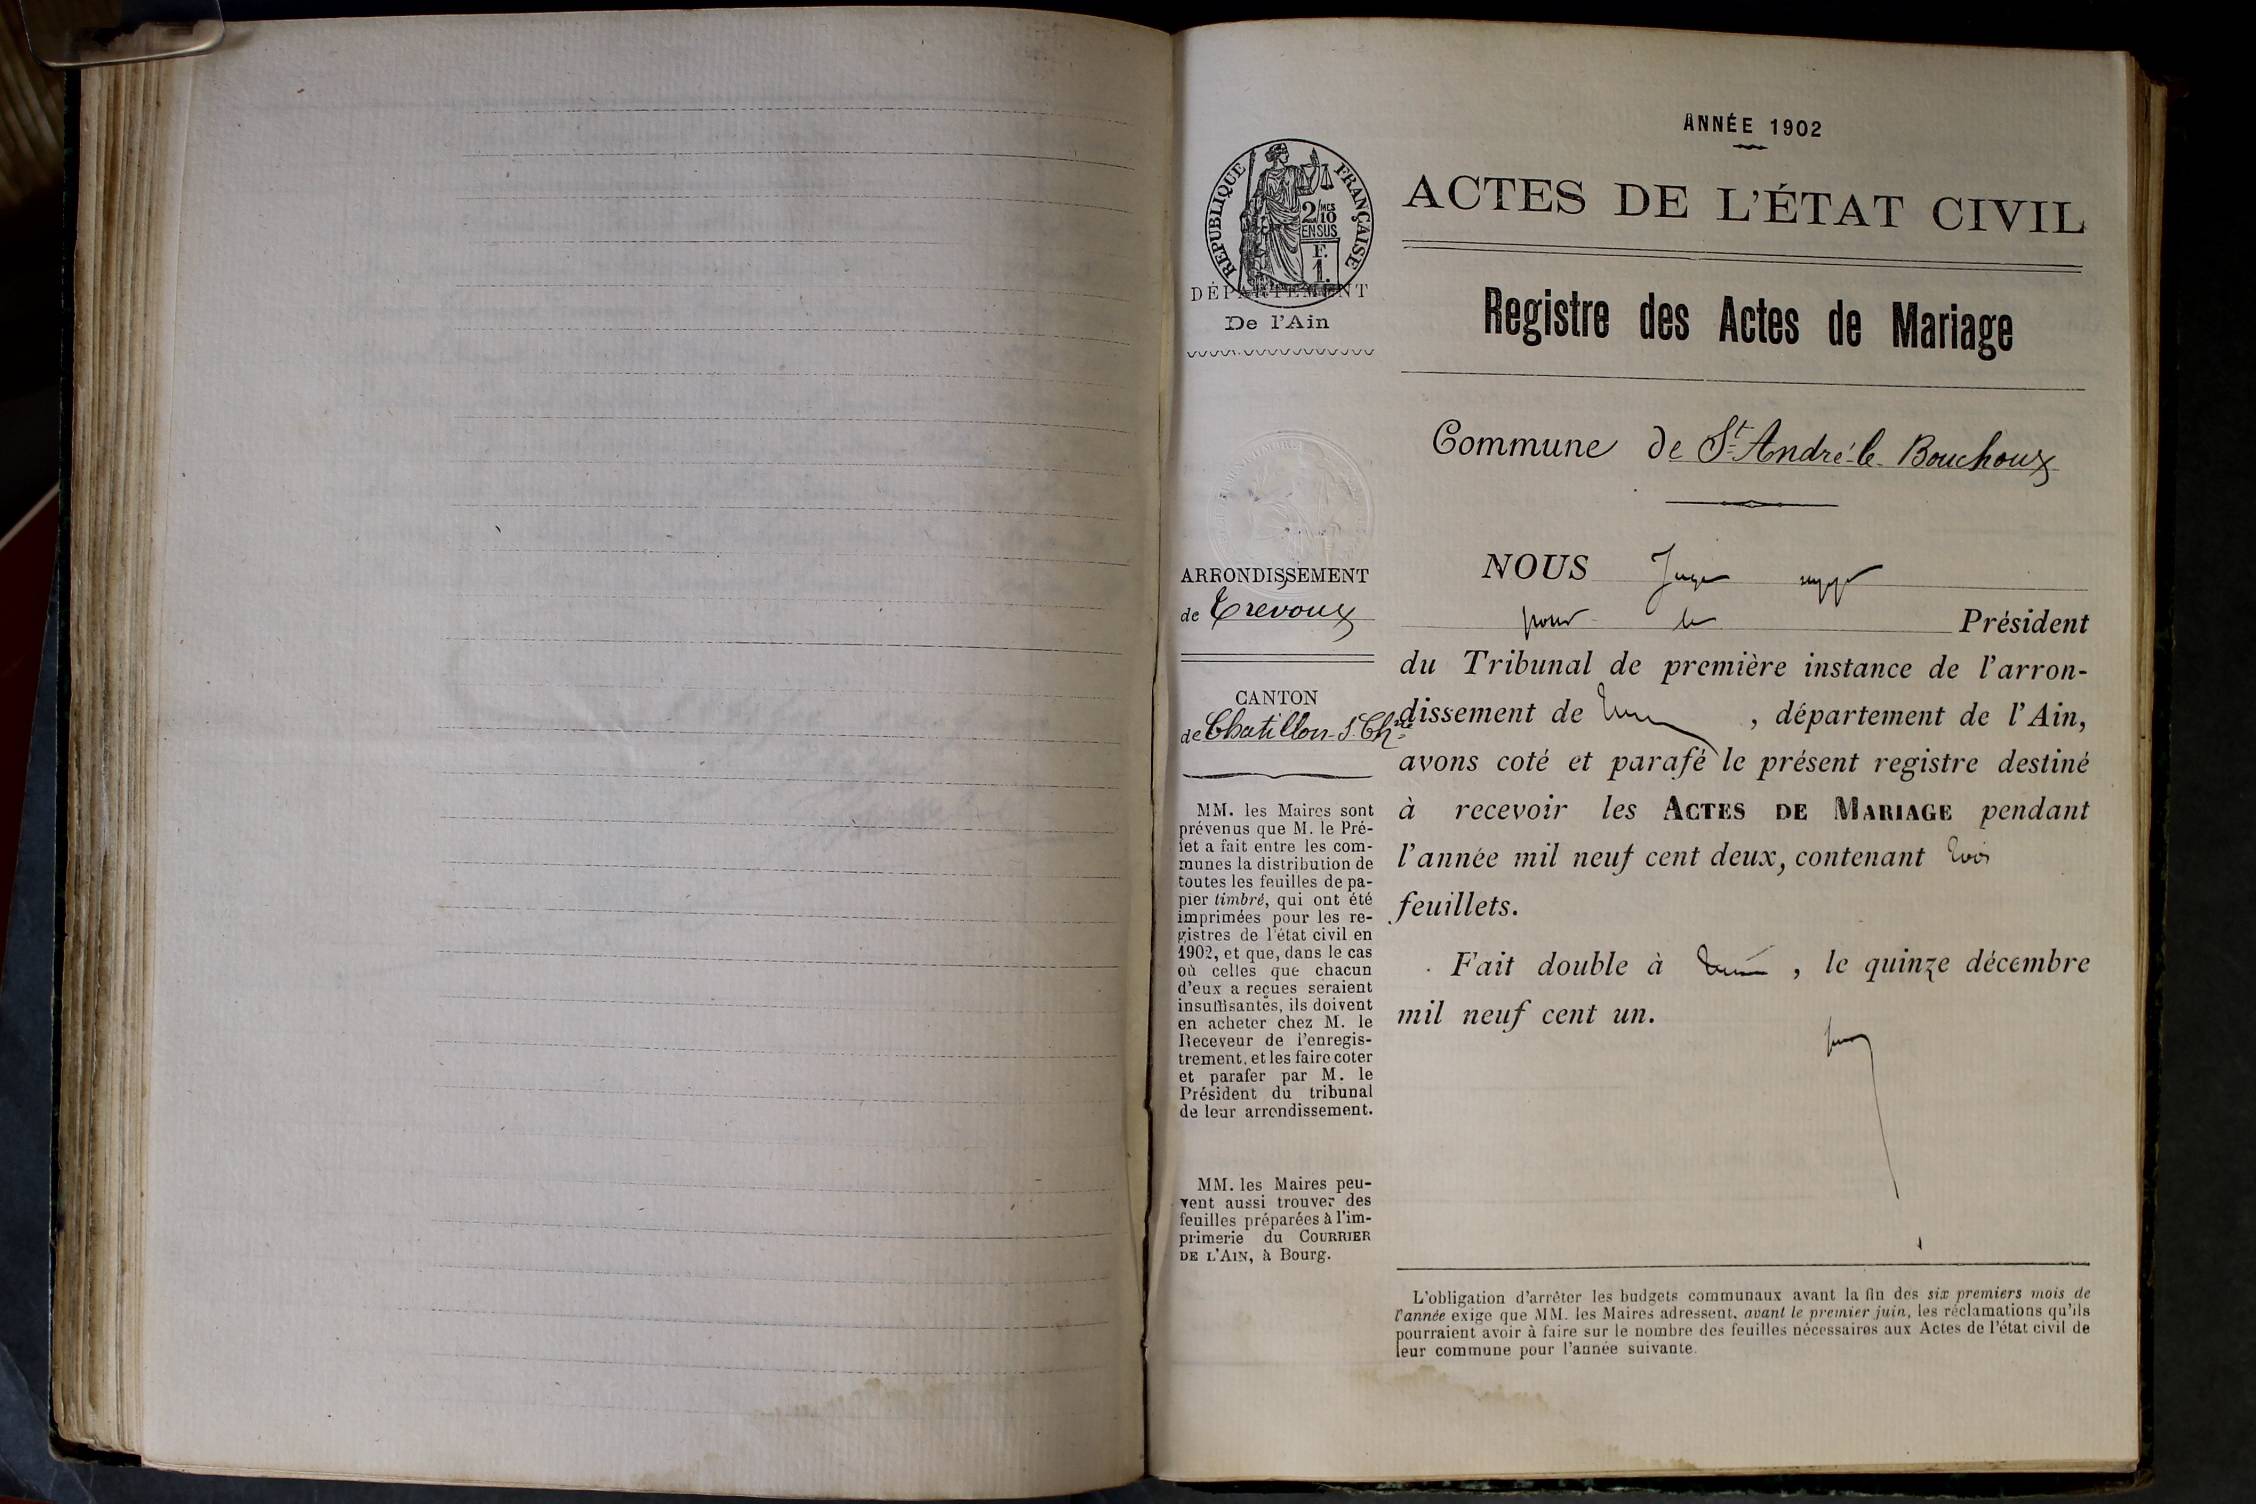 ANNÉE 1902
ACTES DE L'ÉTAT CIVIL
Registre des Actes de Mariage
Commune de St André-le-Bouchoux
RÉPUBLIQUE FRANÇAISE
2/10 MES
EN SUS
F.
1.
DÉPARTEMENT
De l'Ain
ARRONDISSEMENT
de Trevoux
CANTON
de Chatillon-s-Chne
MM. les Maires sont
prévenus que M. le Pré-
fet a fait entre les com-
munes la distribution de
toutes les feuilles de pa-
pier timbré, qui ont été
imprimées pour les re-
gistres de l'état civil en
1902, et que, dans le cas
où celles que chacun
d'eux a reçues seraient
insuffisantes, ils doivent
en acheter chez M. le
Receveur de l'enregis-
trement, et les faire coter
et parafer par M. le
Président du tribunal
de leur arrondissement.
MM. les Maires peu-
vent aussi trouver des
feuilles préparées à l'im-
primerie du COURRIER
DE L'AIN, à Bourg.
NOUS Juge
pour le Président
du Tribunal de première instance de l'arron-
dissement de , département de l'Ain,
avons coté et parafé le présent registre destiné
à recevoir les ACTES DE MARIAGE pendant
l'année mil neuf cent deux, contenant trois
feuillets.
Fait double à , le quinze décembre
mil neuf cent un.
L'obligation d'arrêter les budgets communaux avant la fin des six premiers mois de
l'année exige que MM. les Maires adressent, avant le premier juin, les réclamations qu'ils
pourraient avoir à faire sur le nombre des feuilles nécessaires aux Actes de l'état civil de
leur commune pour l'année suivante.